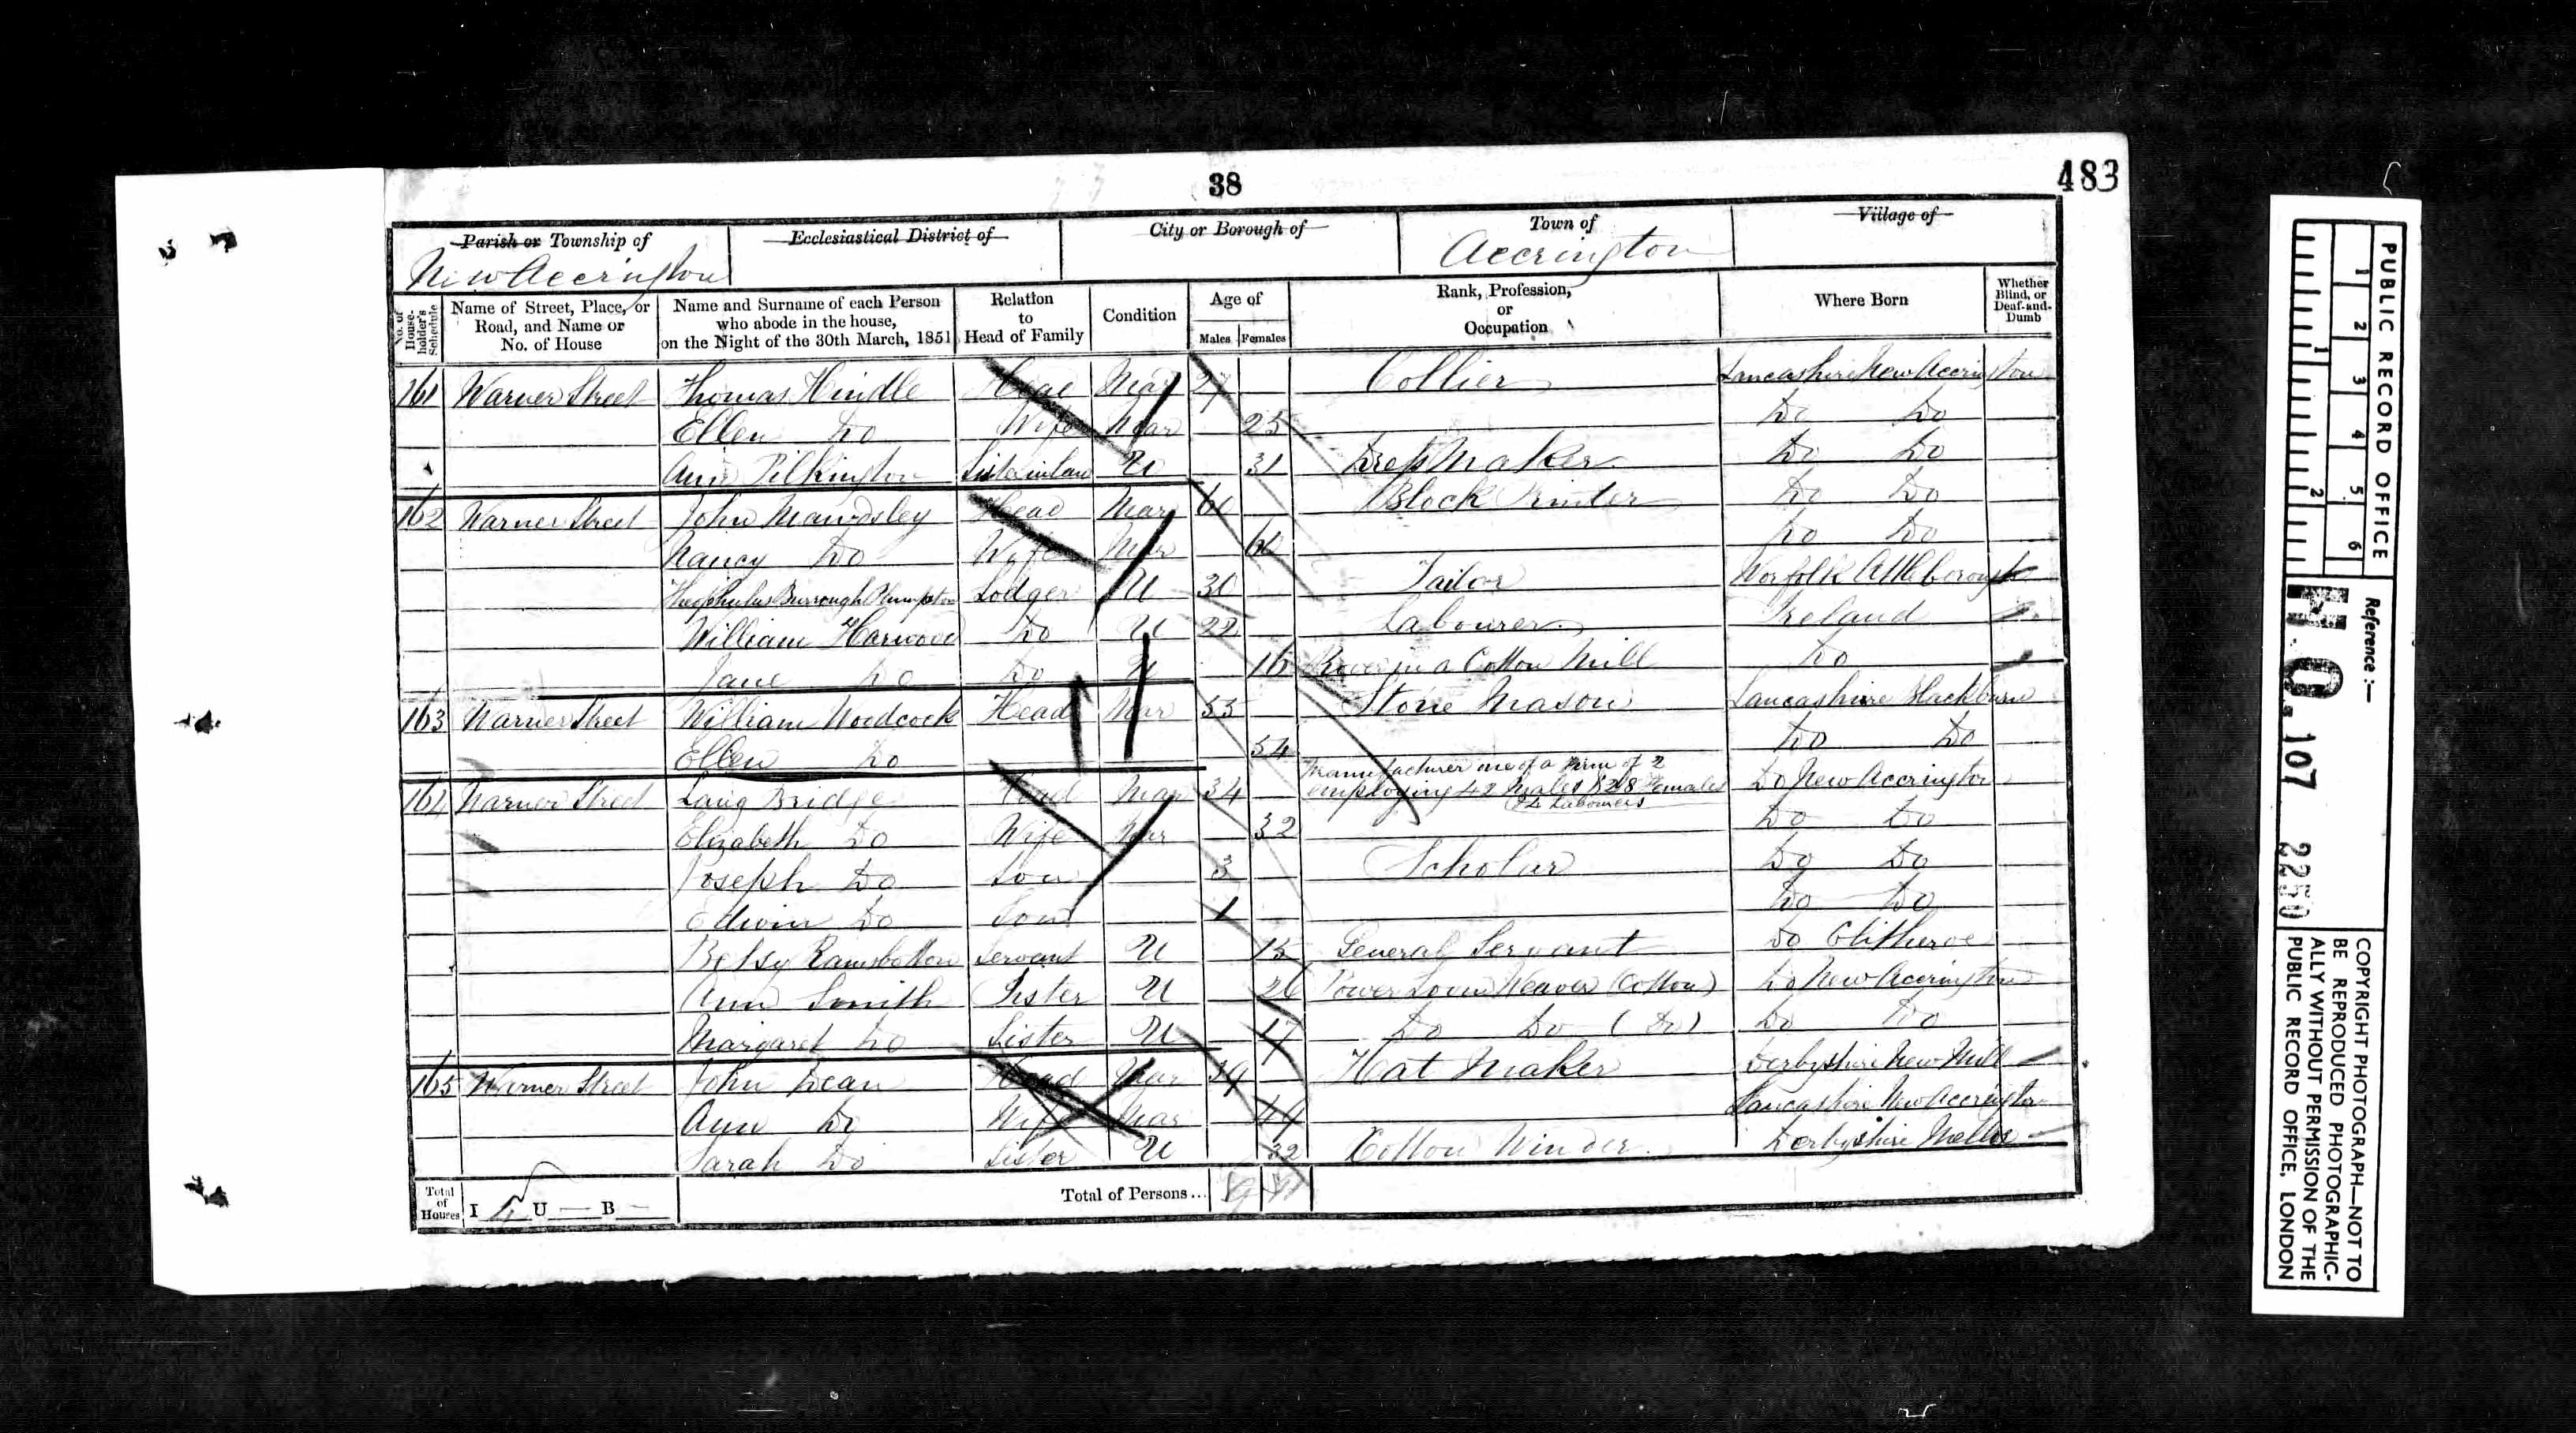 38
483
Parish or Township of
New Accrington
Ecclesiastical District of
City or Borough of
Town of
Accrington
Village of
No. of House-holder's Schedule
Name of Street, Place, or Road, and Name or No. of House
Name and Surname of each Person who abode in the house, on the Night of the 30th March, 1851
Relation to Head of Family
Condition
Age of
Males Females
Rank, Profession, or Occupation
Where Born
Whether Blind, or Deaf-and-Dumb
161 Warner Street Thomas Hindle Head Mar 27 Collier Lancashire New Accrington
Ellen Do Wife Mar 25 Do Do
Ann Pilkington Sister in law U 31 Dress Maker Do Do
162 Warner Street John Mawdsley Head Mar Block Printer Do Do
Nancy Do Wife Mar Do Do
Theophulus Burrough Plumpton Lodger U 30 Tailor Norfolk Attleborough
William Harwood Do U 22 Labourer Ireland
Jane Do Do U 16 Rover in a Cotton Mill Do
163 Warner Street William Woodcock Head Mar 53 Stone Mason Lancashire Blackburn
Ellen Do 54 Do Do
164 Warner Street Lang Bridge Head Mar 34 Manufacturer one of a Firm of 2 employing 42 Males & 28 Females Labourers Do New Accrington
Elizabeth Do Wife Mar 32 Do Do
Joseph Do Son 3 Scholar Do Do
Edwin Do Son 1 Do Do
Betsy Ramsbottom Servant U 15 General Servant Do Clitheroe
Ann Smith Sister U 26 Power Loom Weaver (Cotton) Do New Accrington
Margaret Do Sister U 17 Do Do (Do) Do Do
165 Warner Street John Dean Head Mar 39 Hat Maker Derbyshire New Mill
Ann Do Wife Mar 44 Lancashire New Accrington
Sarah Do Sister U 32 Cotton Winder Derbyshire Mellor
Total of Houses I 4 U — B —
Total of Persons... 9 11
PUBLIC RECORD OFFICE
1 2 3 4 5 6
1 2
Reference:—
H.O. 107 2250
COPYRIGHT PHOTOGRAPH—NOT TO
BE REPRODUCED PHOTOGRAPHIC-
ALLY WITHOUT PERMISSION OF THE
PUBLIC RECORD OFFICE, LONDON